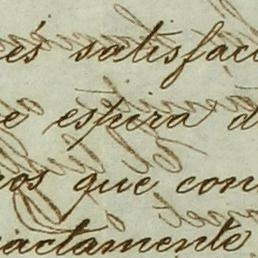 és satisfac
e espira d
ros que con
actamente